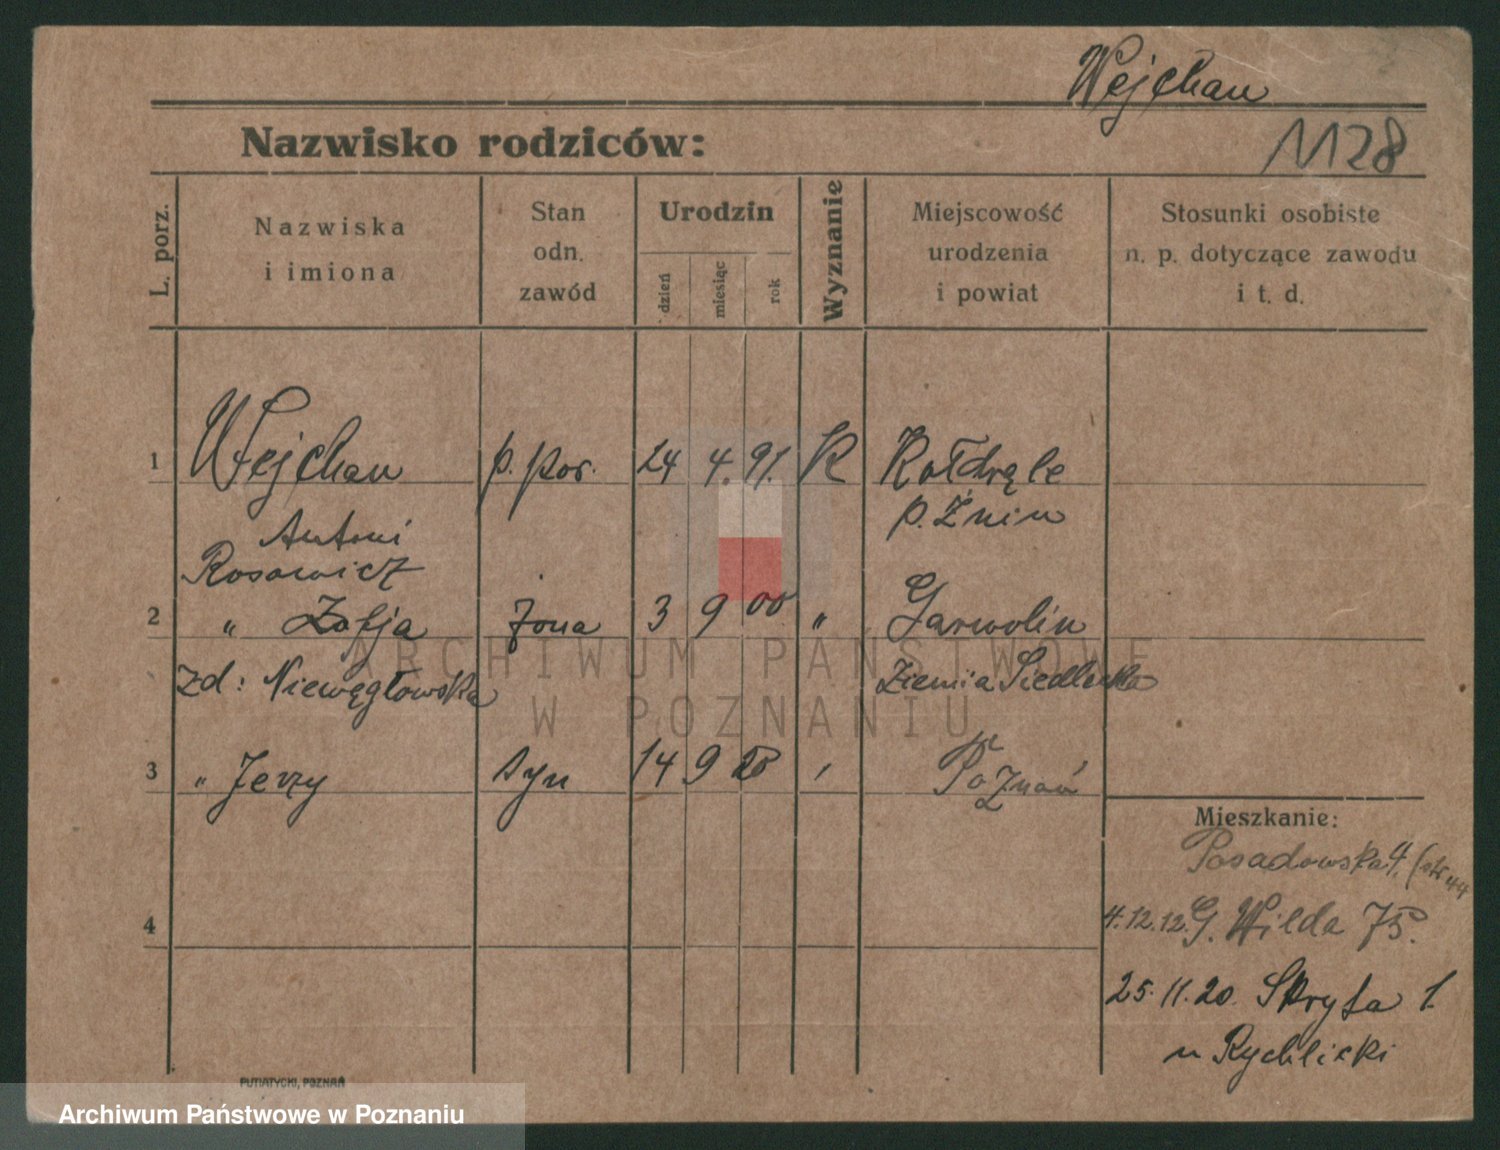 Wejchan
Nazwisko rodziców:
1128
L. porz.
Nazwiska
i imiona
Stan
odn.
zawód
Urodzin
dzień
miesiąc
rok
Wyznanie
Miejscowość
urodzenia
i powiat
Stosunki osobiste
n. p. dotyczące zawodu
i t. d.
1 Wejchan p. por. 24 4. 91. K Kołdrąle
p. Żnin
Antoni
Rosowicz
2 " Zofja żona 3 9 00 " Garwolin
zd: Niewęgłowska Ziemia Siedlecka
3 " Jerzy syn 14 9 20 Poznań
Mieszkanie:
Posadowska 4.
4 4.12.12. G. Wilda 75.
25.11.20. Skryta 1.
u Rychlicki
PUTIATYCKI, POZNAŃ
ARCHIWUM PAŃSTWOWE
W POZNANIU
Archiwum Państwowe w Poznaniu